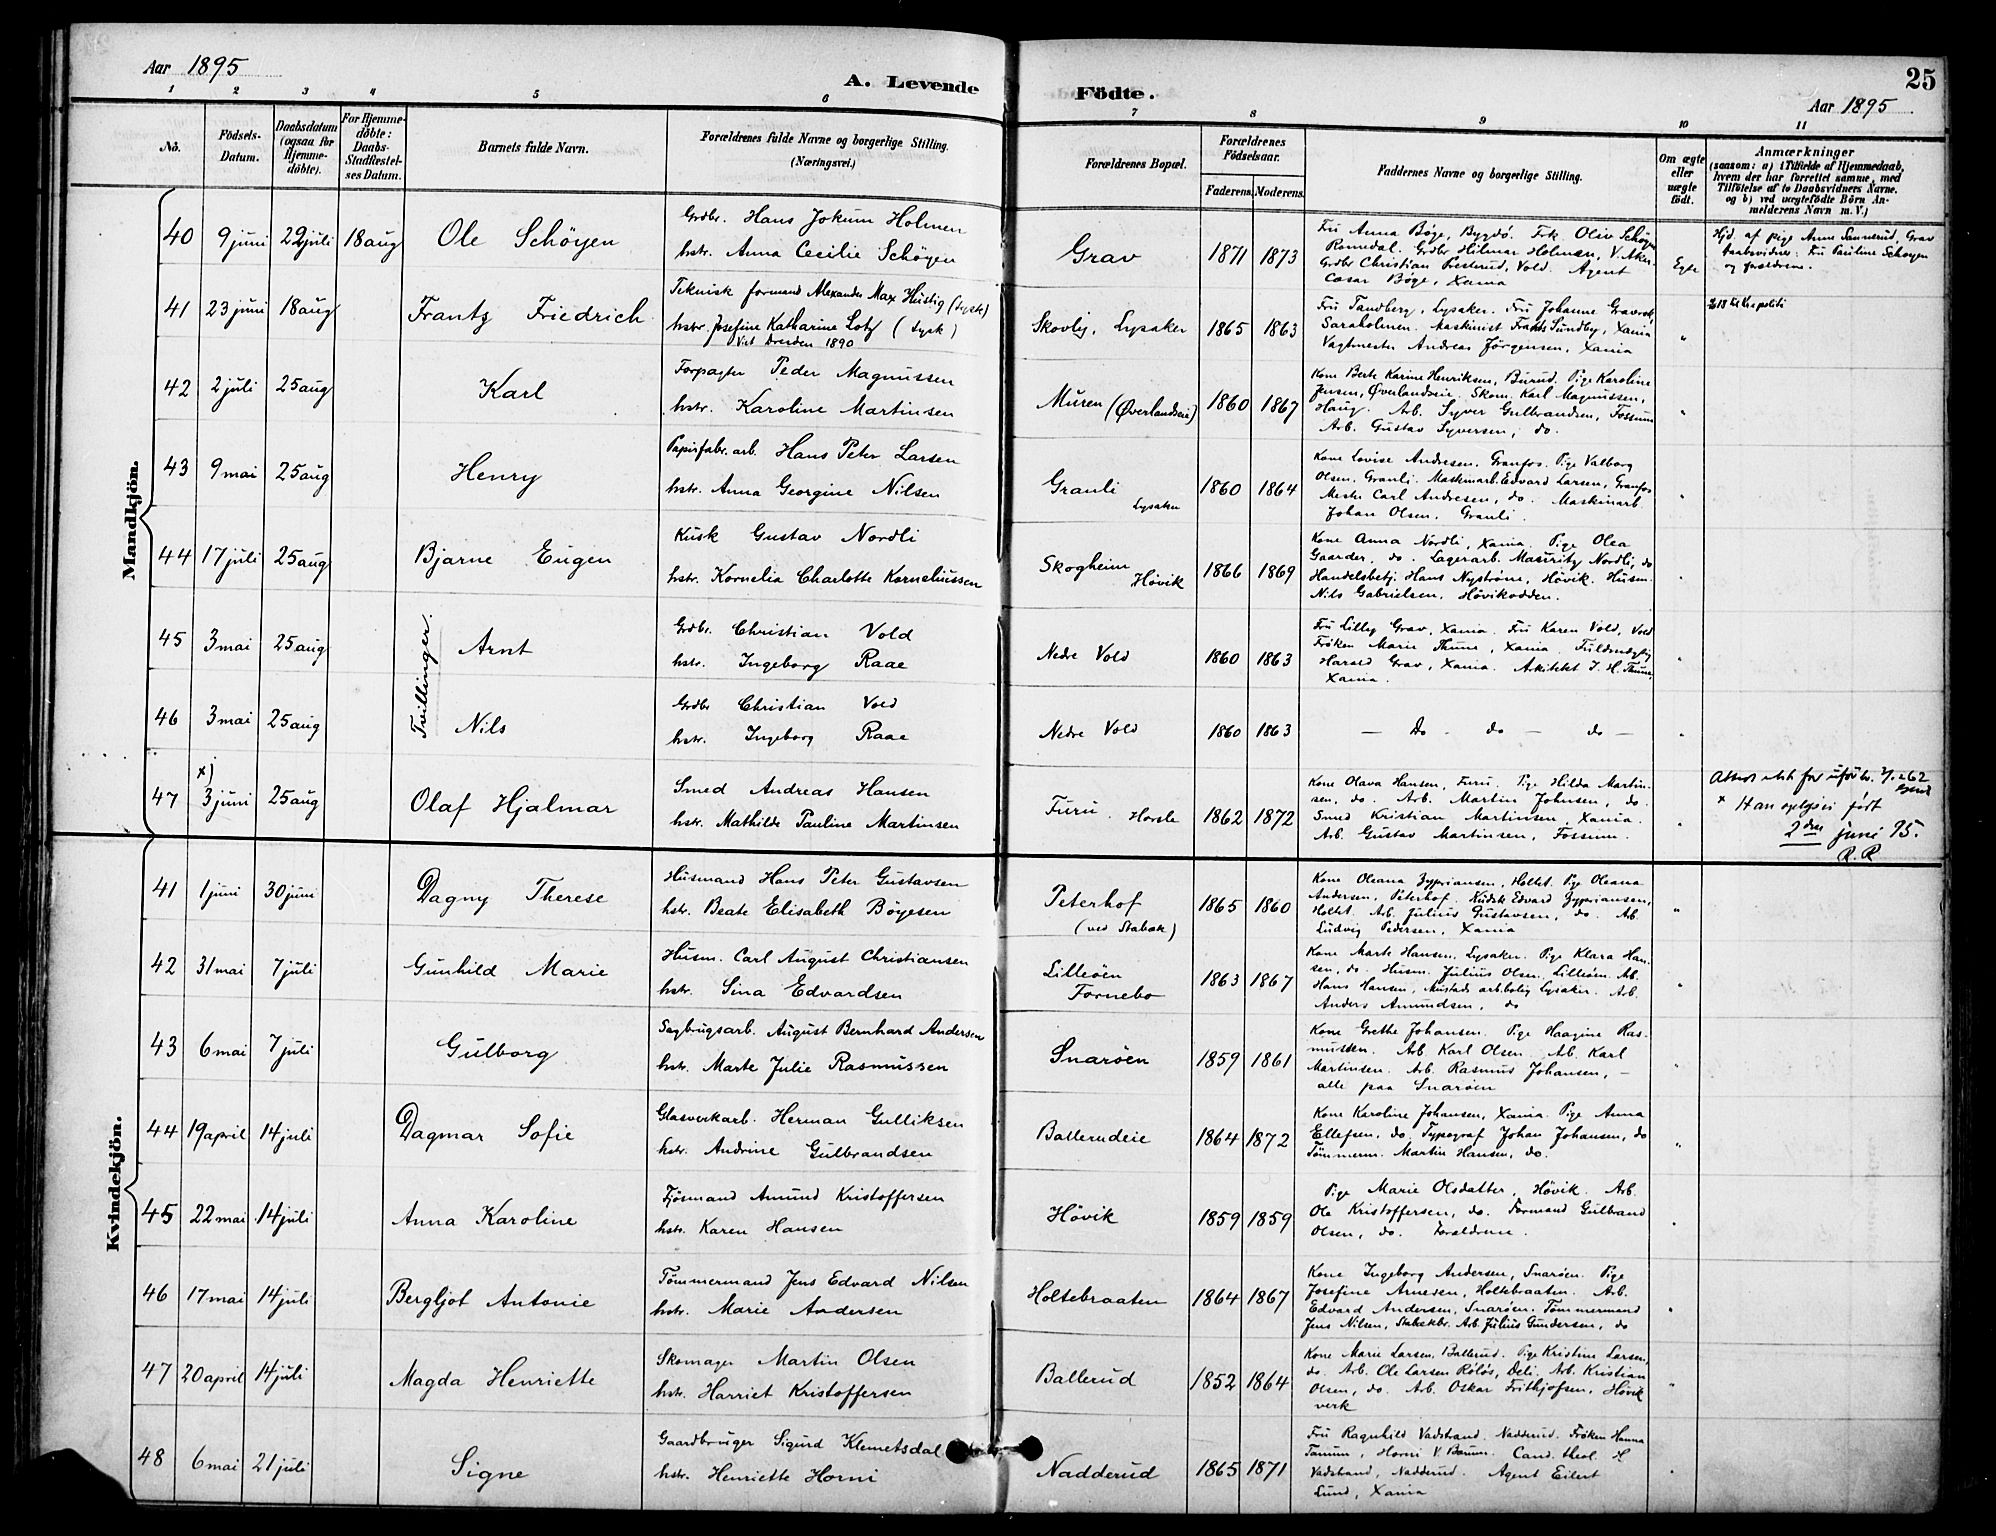 Aar 1895
A. Levende Födte.
25
Aar 1895
1 2 3 4 5 6 7 8 9 10 11
No.
Födsels-Datum.
Daabsdatum (ogsaa for Hjemmedöbte).
For Hjemmedöbte: Daabs-Stadfæstelses Datum.
Barnets fulde Navn.
Forældrenes fulde Navne og borgerlige Stilling. (Næringsvei.)
Forældrenes Bopæl.
Forældrenes Födselsaar.
Faderens. Moderens.
Faddernes Navne og borgerlige Stilling.
Om ægte eller uægte födt.
Anmærkninger
(saasom: a) i Tilfælde af Hjemmedaab, hvem der har forrettet samme, med Tilföielse af to Daabsvidners Navne. og b) ved uægtefödte Börn Anmelderens Navn m. V.)
Mandkjön.
40 9 juni 22 juli 18 aug Ole Schöyen
Grdbr. Hans Jokum Holmen
hstr. Anna Cecilie Schöyen
Grav 1871 1873
Fru Anna Böge, Bygdö. Frk. Oliv Schöyen
Romedal. Grdbr Hilmar Holmen, V. Aker.
Grdbr Christian Presterud, Vold. Agent
Cæsar Böge, Xania
Egte
Hjd. af pige Anne Sannerud, Grav
Daabsvidner: Fru Pauline Schöyen
og forældrene.
41 23 juni 18 aug Frantz Friedrich
Teknisk formand Alexander Max Hustig (tysk)
hstr. Josefine Katharine Lotz (tysk)
Viet Dresden 1890
Skovly, Lysaker 1865 1863
Fru Tandberg, Lysaker. Fru Johanne Gravrok,
Saraholmen. Maskinist Frants Sundby, Xania
Vagtmester Andreas Jörgensen, Xania
"
42 2 juli 25 aug Karl
Forpagter Peder Magnussen
hstr. Karoline Martinsen
Muren (Øverlandseie) 1860 1867
Kone Berte Karine Henriksen, Burud. Pige Karoline
Jensen, Øverlandseie. Skom. Karl Magnussen,
Haug. Arb. Syver Gulbrandsen, Fossum
Arb. Gustav Syversen, do.
"
43 9 mai 25 aug Henry
Papirfabr. arb. Hans Peter Larsen
hstr. Anna Georgine Nilsen
Granli Lysaker 1860 1864
Kone Lovise Andresen. Granfos. Pige Valborg
Olsen, Granli. Maskinarb. Edvard Larsen, Granfos
Mester Carl Andresen, do. Maskinarb.
Johan Olsen. Granli.
"
44 17 juli 25 aug Bjarne Eugen
Kusk Gustav Nordli
hstr. Kornelia Charlotte Korneliussen
Skogheim Hövik 1866 1869
Kone Anna Nordli, Xania. Pige Olea
Gaarder, do. Lagerarb. Mauritz Nordli, do
Handelsbetj. Hans Nyström, Hövik. Husm.
Nils Gabrielsen, Hövikodden.
"
Tvillinger.
45 3 mai 25 aug Arnt
Grdbr. Christian Vold
hstr. Ingeborg Raae
Nedre Vold 1860 1863
Fru Lilly Grav, Xania. Fru Karen Vold, Vold
Fröken Marie Thune, Xania. Fuldmægtig
Harald Grav, Xania. Arkitekt J. H. Thune,
Xania.
"
46 3 mai 25 aug Nils
Grdbr Christian Vold
hstr. Ingeborg Raae
Nedre Vold 1860 1863
— Do - do — do —
"
47 x) 3 juni 25 aug Olaf Hjalmar
Smed Andreas Hansen
hstr. Mathilde Pauline Martinsen
Furu. Horsle 1862 1872
Kone Olava Hansen, Furu. Pige Hilda Martin-
sen, do. Arb. Martin Johnsen, do.
Smed Kristian Martinsen, Xania.
Arb. Gustav Martinsen, Fossum.
"
x Han opgives født
2den juni 95.
R. R
Kvindekjön.
41 1 juni 30 juni Dagny Therese
Husmand Hans Peter Gustavsen
hstr. Beate Elisabeth Böyesen
Peterhof (ved Stabæk) 1865 1860
Kone Oleana Zypriansen, Holtet. Pige Oleana
Andersen, Peterhof. Kudsk Edvard Zypriansen,
Holtet. Arb. Julius Gustavsen, do. Arb.
Ludvig Pedersen, Xania
"
42 31 mai 7 juli Gunhild Marie
Husm. Carl August Christiansen
hstr. Sina Edvardsen
Lilleöen Fornebo 1863 1867
Kone Marte Hansen, Lysaker. Pige Klara Han-
sen, do. Husm. Julius Olsen, Lilleöen. Arb.
Hans Hansen, Mustads arb.bolig Lysaker. Arb.
Anders Amundsen, do
"
43 6 mai 7 juli Gulborg
Sagbrugsarb. August Bernhard Andersen
hstr. Marte Julie Rasmussen
Snaröen 1859 1861
Kone Grethe Johansen. Pige Haagine Ras-
mussen. Arb. Karl Olsen. Arb. Karl
Martinsen. Arb. Rasmus Johansen, —
alle paa Snaröen
"
44 19 april 14 juli Dagmar Sofie
Glasverkarb. Herman Gulliksen
hstr. Andrine Gulbrandsen
Ballerudeie 1864 1872
Kone Karoline Johansen, Xania. Pige Anna
Ellefsen, do. Typograf Johan Johansen, do
Tömmerm. Martin Hansen, do.
"
45 22 mai 14 juli Anna Karoline
Fjösmand Amund Kristoffersen
hstr. Karen Hansen
Hövik 1859 1859
Pige Marie Olsdatter, Hövik. Arb.
Ole Kristoffersen, do. Formand Gulbrand
Olsen, do. Forældrene.
"
46 17 mai 14 juli Bergljot Antonie
Tömmermand Jens Edvard Nilsen
hstr. Marie Andersen
Holtebraaten 1864 1867
Kone Ingeborg Andersen, Snaröen. Pige
Josefine Arnesen, Holtebraaten. Arb.
Edvard Andersen, Snaröen. Tömmermand
Jens Nilsen, Stabækbr. Arb. Julius Gundersen, do
"
47 20 april 14 juli Magda Henriette
Skomager Martin Olsen
hstr. Harriet Kristoffersen
Ballerud 1852 1864
Kone Marie Larsen, Ballerud. Pige Kristine Larsen,
do. Arb. Ole Larsen Röløs, Deli. Arb. Kristian
Olsen, do. Arb. Oskar Frithjofsen, Hövik
verk
"
48 6 mai 21 juli Signe
Gaardbruger Sigurd Klemetsdal
hstr. Henriette Horni
Nadderud 1865 1871
Fru Ragnhild Vadstrand. Nadderud. Fröken Hanna
Tanum, Horni V. Bærum. Cand. theol. H
Vadstrand, Nadderud. Agent Eilert
Lund, Xania
"